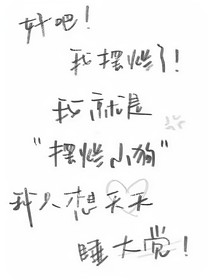 好吧!
我摆烂了!
我就是
“摆烂小狗”
我只想天天
睡大觉!